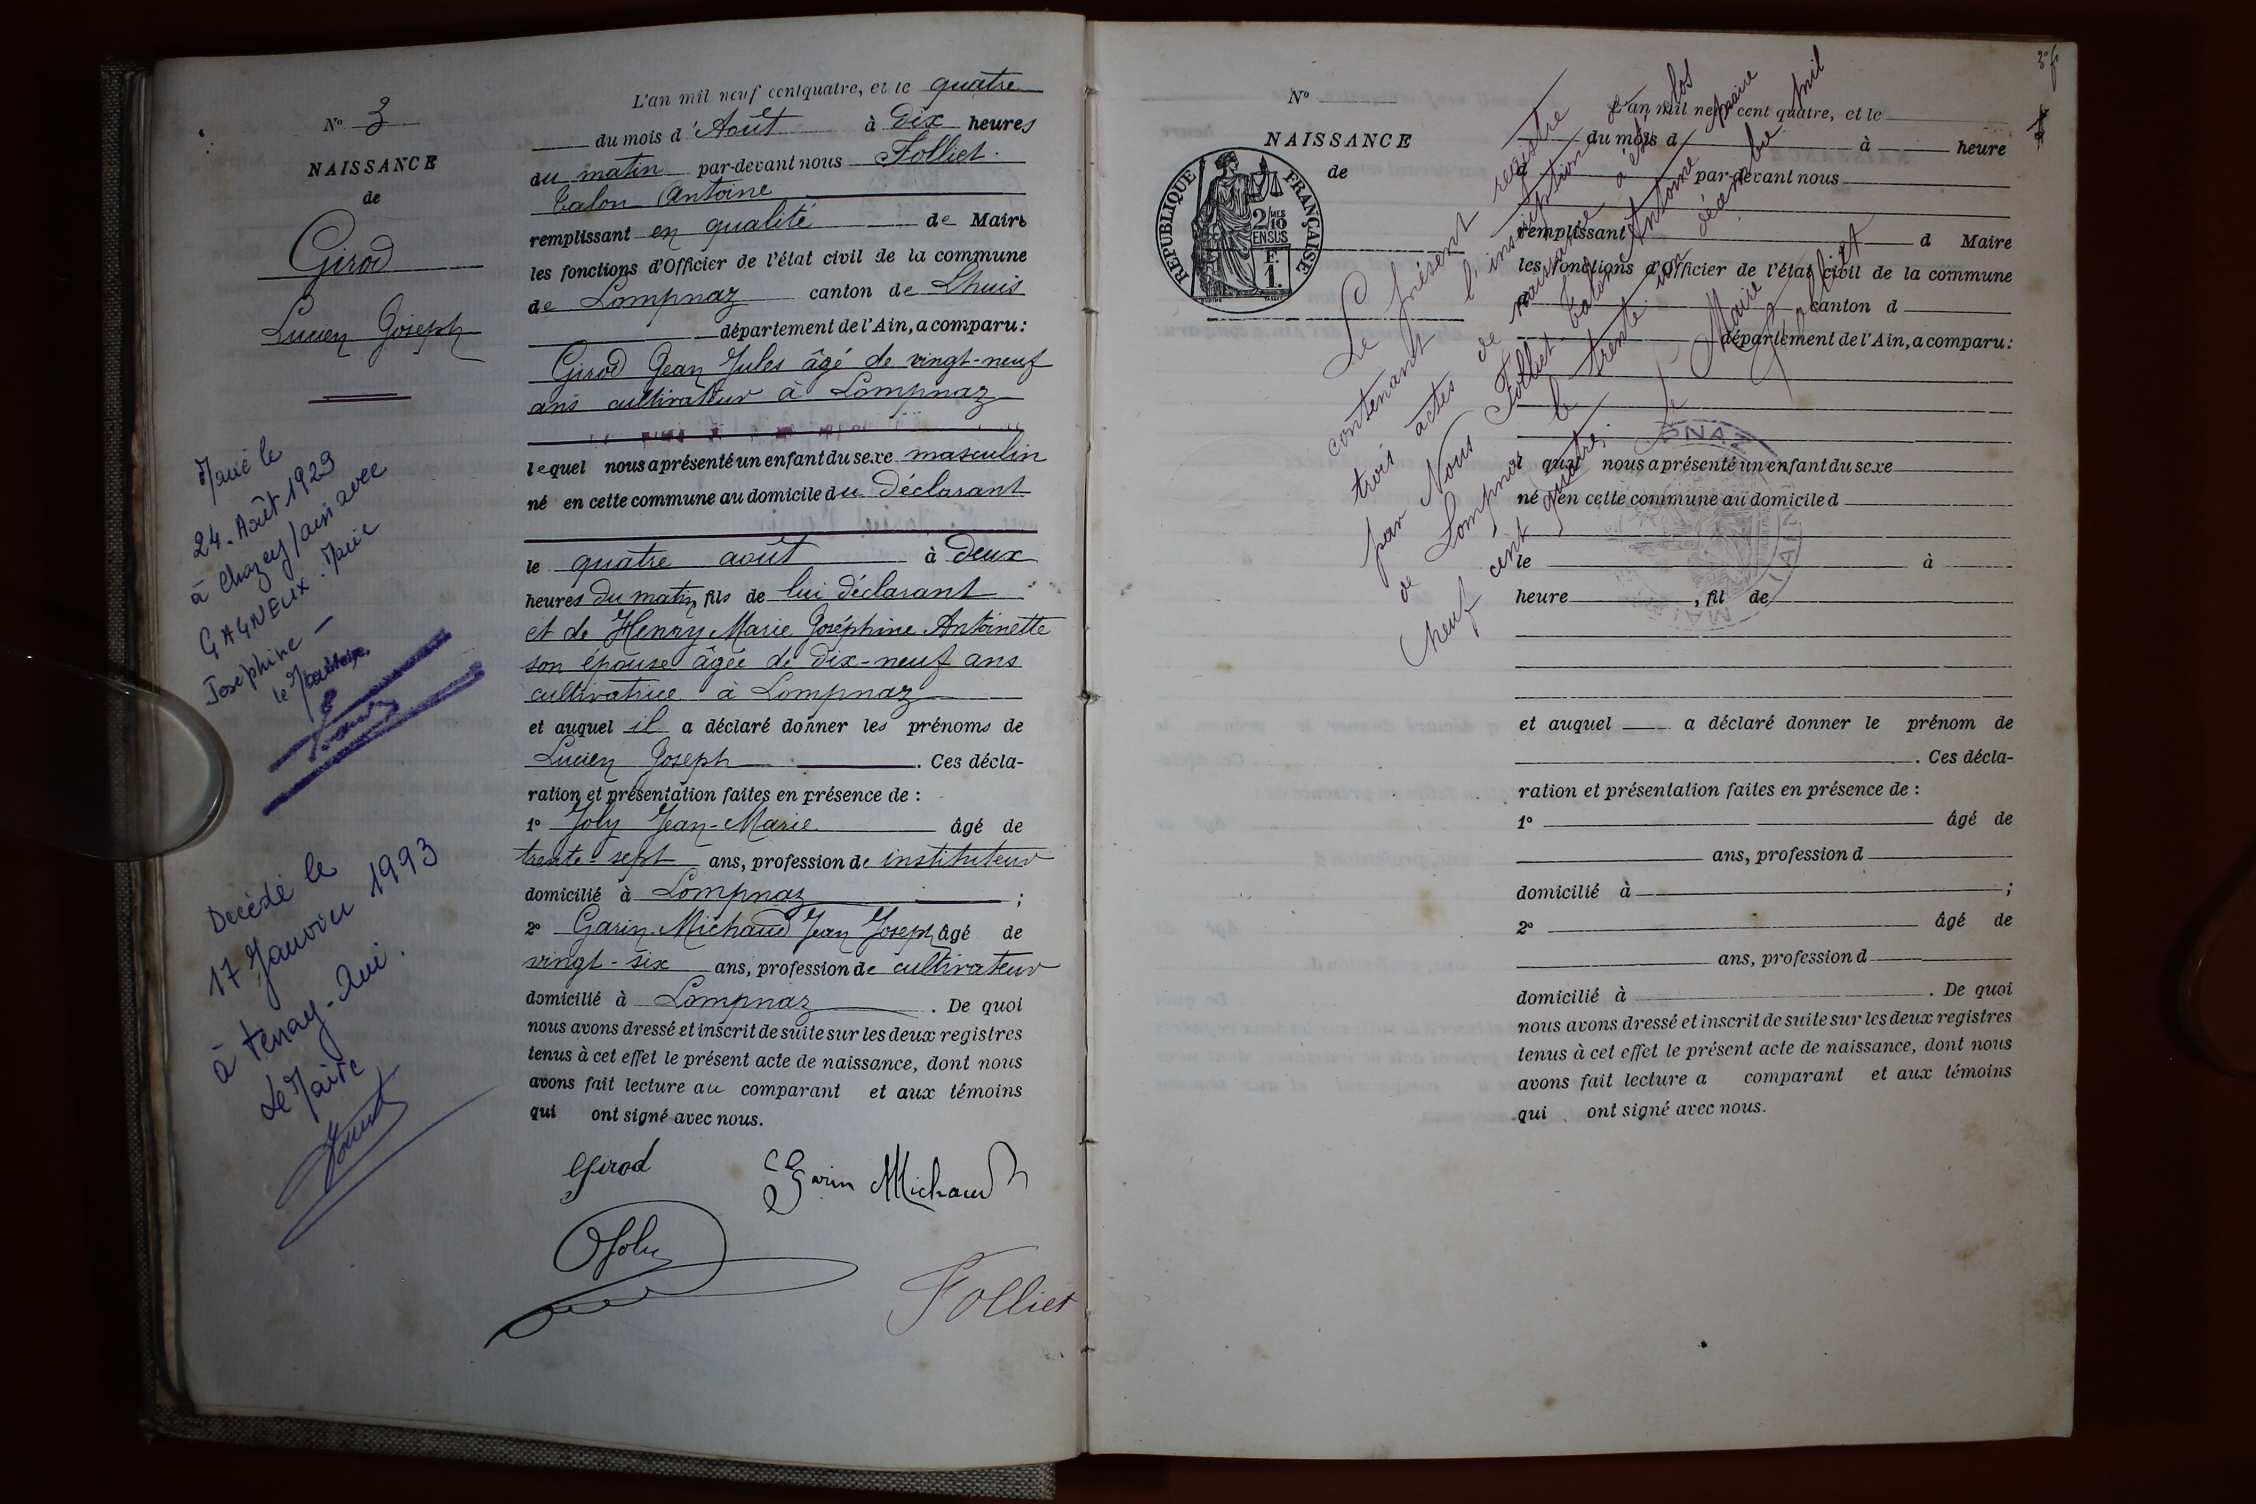 N° 3
NAISSANCE
de
Girod
Lucien Joseph
Marié le
24. Août 1929
à Chazey/ain avec
GAGNEUX. Marie
Joséphine —
le Maire
Décédé le
17 Janvier 1993
à Tenay-Ain.
Le Maire
L'an mil neuf cent quatre, et le quatre
du mois d'Août à dix heures
du matin par-devant nous Folliet-
Calon Antoine
remplissant en qualité de Maire
les fonctions d'Officier de l'état civil de la commune
de Lompnaz canton de Lhuis
département de l'Ain, a comparu:
Girod Jean Jules âgé de vingt-neuf
ans cultivateur à Lompnaz
lequel nous a présenté un enfant du sexe masculin
né en cette commune au domicile du Déclarant
le quatre août à deux
heures du matin, fils de lui déclarant
et de Henry Marie Joséphine Antoinette
son épouse âgée de dix-neuf ans
cultivatrice à Lompnaz
et auquel il a déclaré donner les prénoms de
Lucien Joseph. Ces décla-
ration et présentation faites en présence de :
1° Joly Jean-Marie âgé de
trente-sept ans, profession de instituteur
domicilié à Lompnaz ;
2° Garin-Michaud Jean Joseph âgé de
vingt-six ans, profession de cultivateur
domicilié à Lompnaz. De quoi
nous avons dressé et inscrit de suite sur les deux registres
tenus à cet effet le présent acte de naissance, dont nous
avons fait lecture au comparant et aux témoins
qui ont signé avec nous.
Girod Garin Michaud
Joly
Folliet
3e f
N°
NAISSANCE
de
REPUBLIQUE FRANÇAISE
2/10 MES
EN SUS
F.
1.
L'an mil neuf cent quatre, et le
du mois d à heure
d par-devant nous
remplissant d Maire
les fonctions d'Officier de l'état civil de la commune
canton d
département de l'Ain, a comparu:
l quel nous a présenté un enfant du sexe
né en cette commune au domicile d
le à
heure , fil de
et auquel a déclaré donner le prénom de
. Ces décla-
ration et présentation faites en présence de :
1° âgé de
ans, profession d
domicilié à ;
2° âgé de
ans, profession d
domicilié à . De quoi
nous avons dressé et inscrit de suite sur les deux registres
tenus à cet effet le présent acte de naissance, dont nous
avons fait lecture a comparant et aux témoins
qui ont signé avec nous.
Le présent registre
contenant l'inscription de
trois actes de naissance a été clos
par Nous Folliet-Calon Antoine maire
de Lompnaz le trente un décembre mil
neuf cent quatre,
Le Maire
Folliet